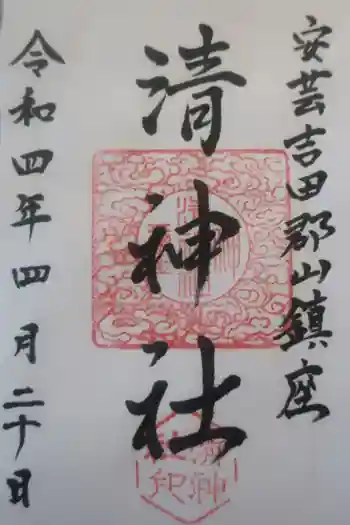 安芸吉田郡山鎮座
清神社
令和四年四月二十日